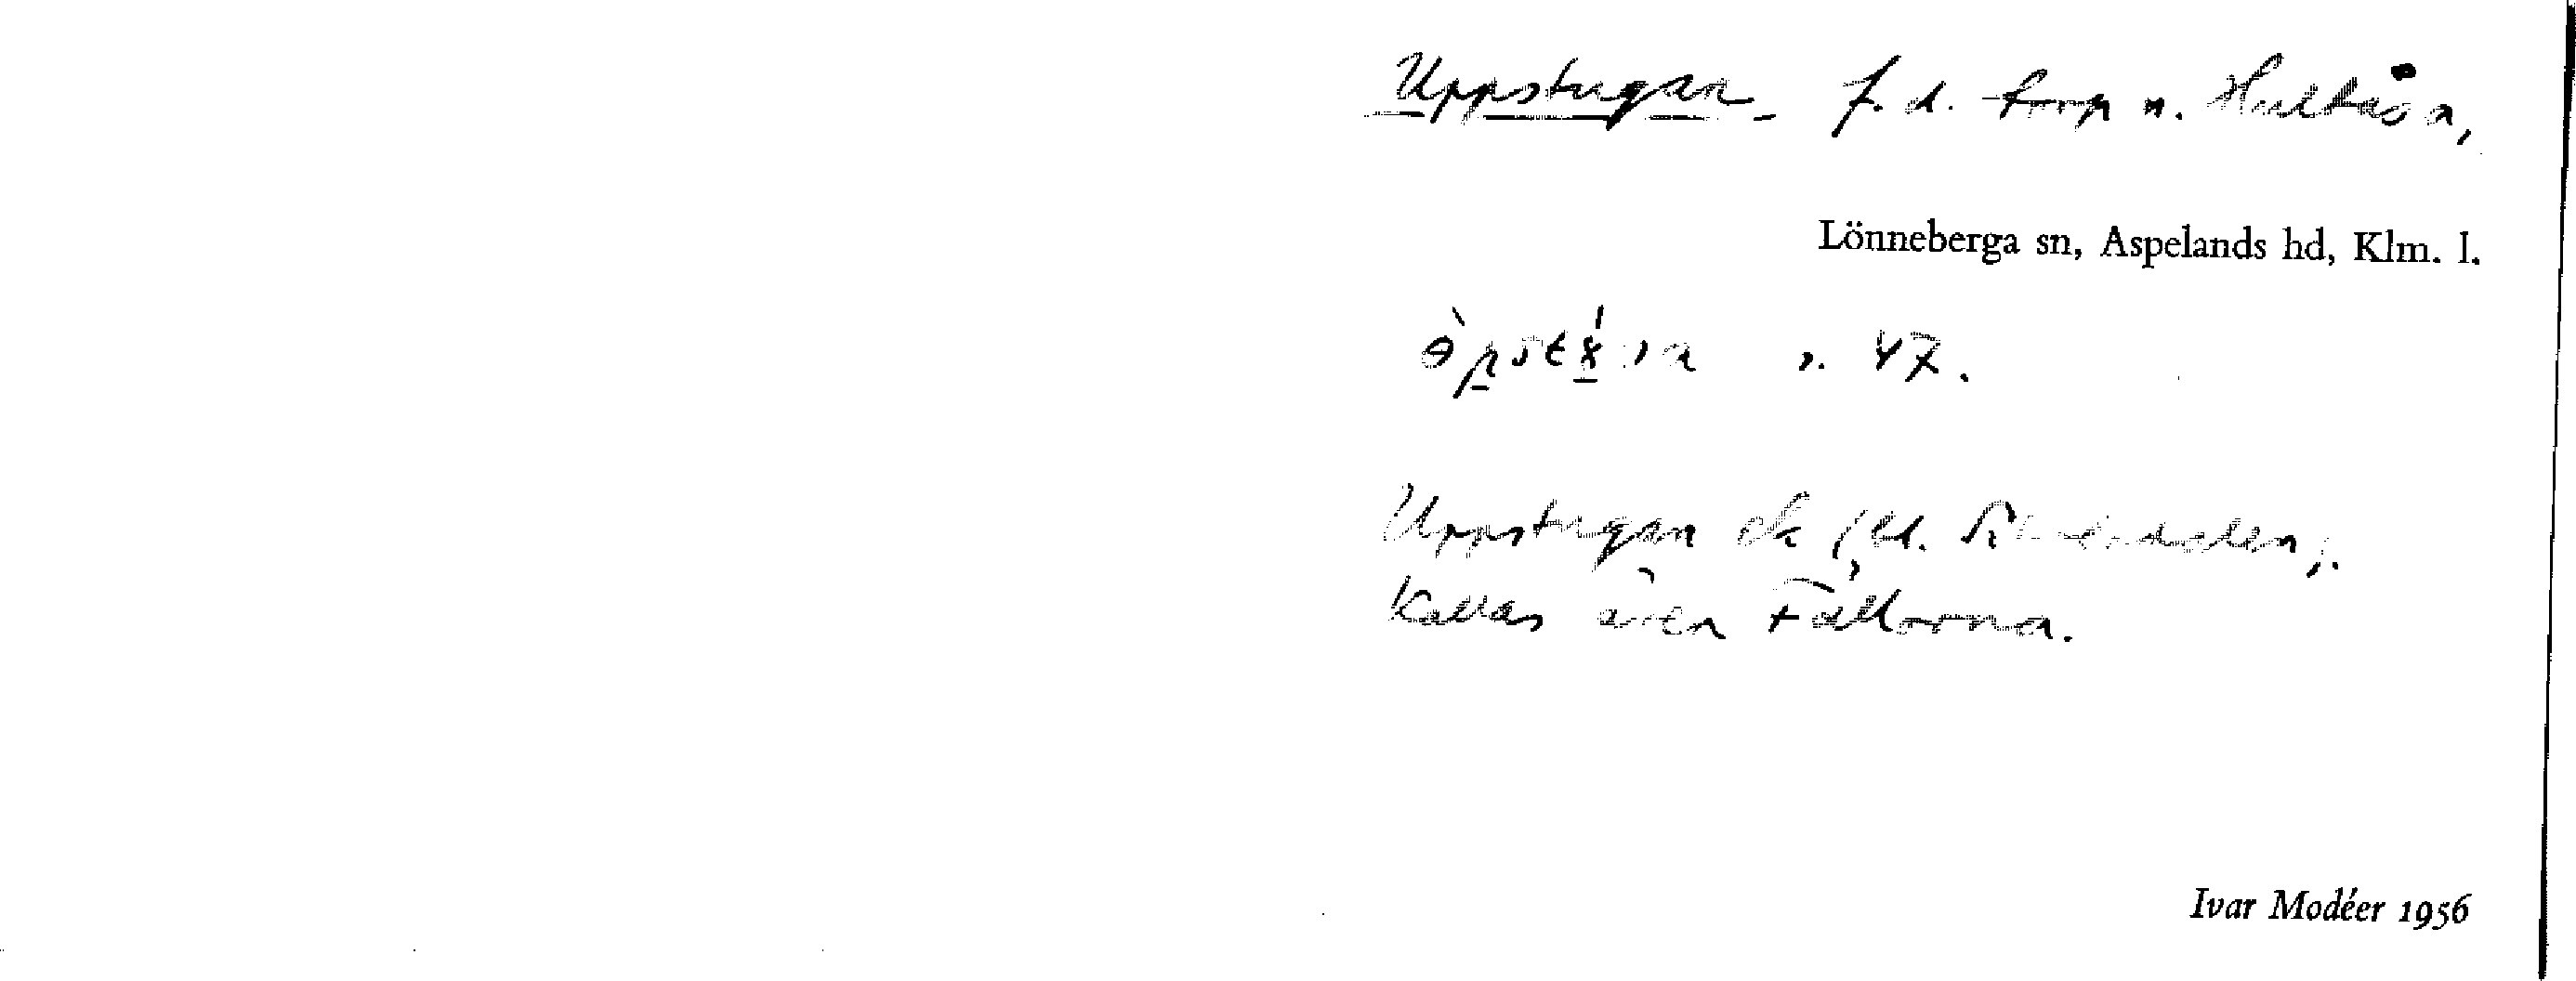 Uppstugan, f. d. torp u. Hultåsa,
Lönneberga sn, Aspelands hd, Klm. l.
s. 47.
Uppstugan ek
Kallas även Fällorna.
Ivar Modéer 1956